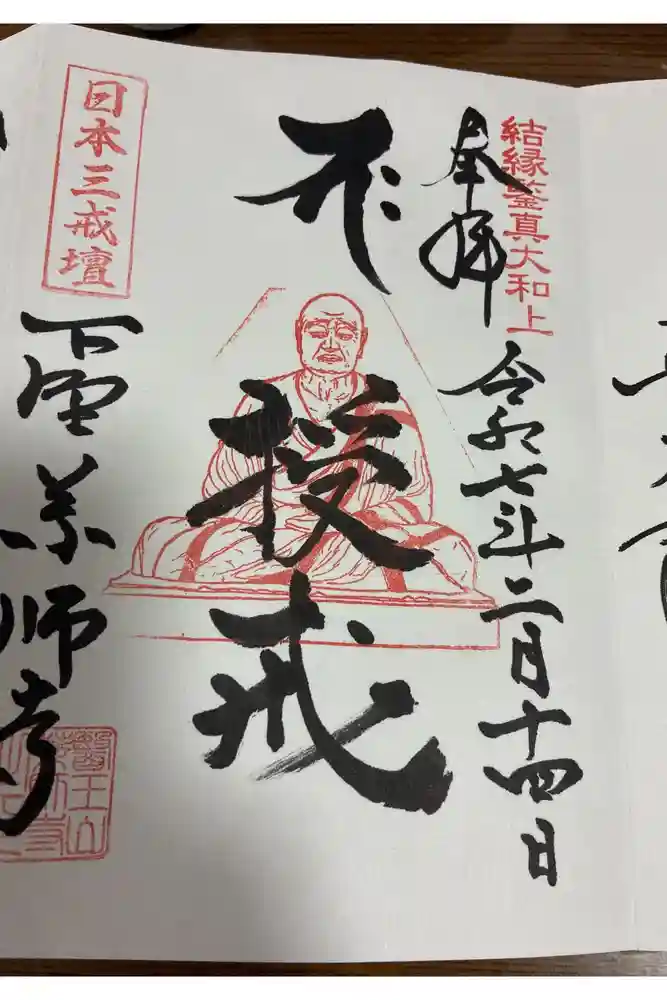 結縁鑒真大和上
奉拝
令和七年二月十四日
授戒
日本三戒壇
下野薬師寺